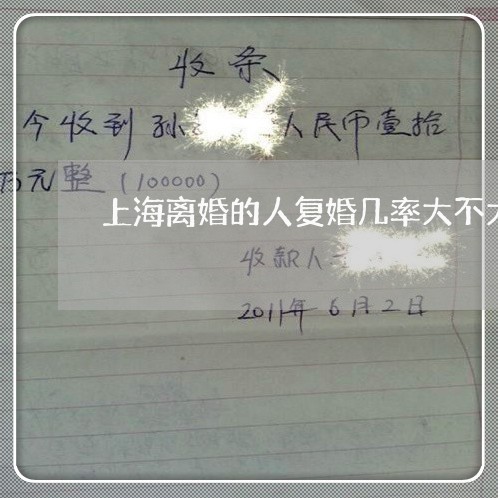 收条
今收到孙 人民币壹拾
万元整（100000）
上海离婚的人复婚几率大不大
收款人
2011年6月2日